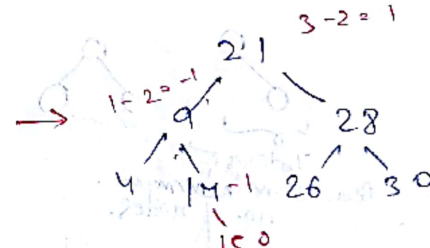 3-2=1
21
1-2=-1
9
28
4
14 -1
26
30
15 0